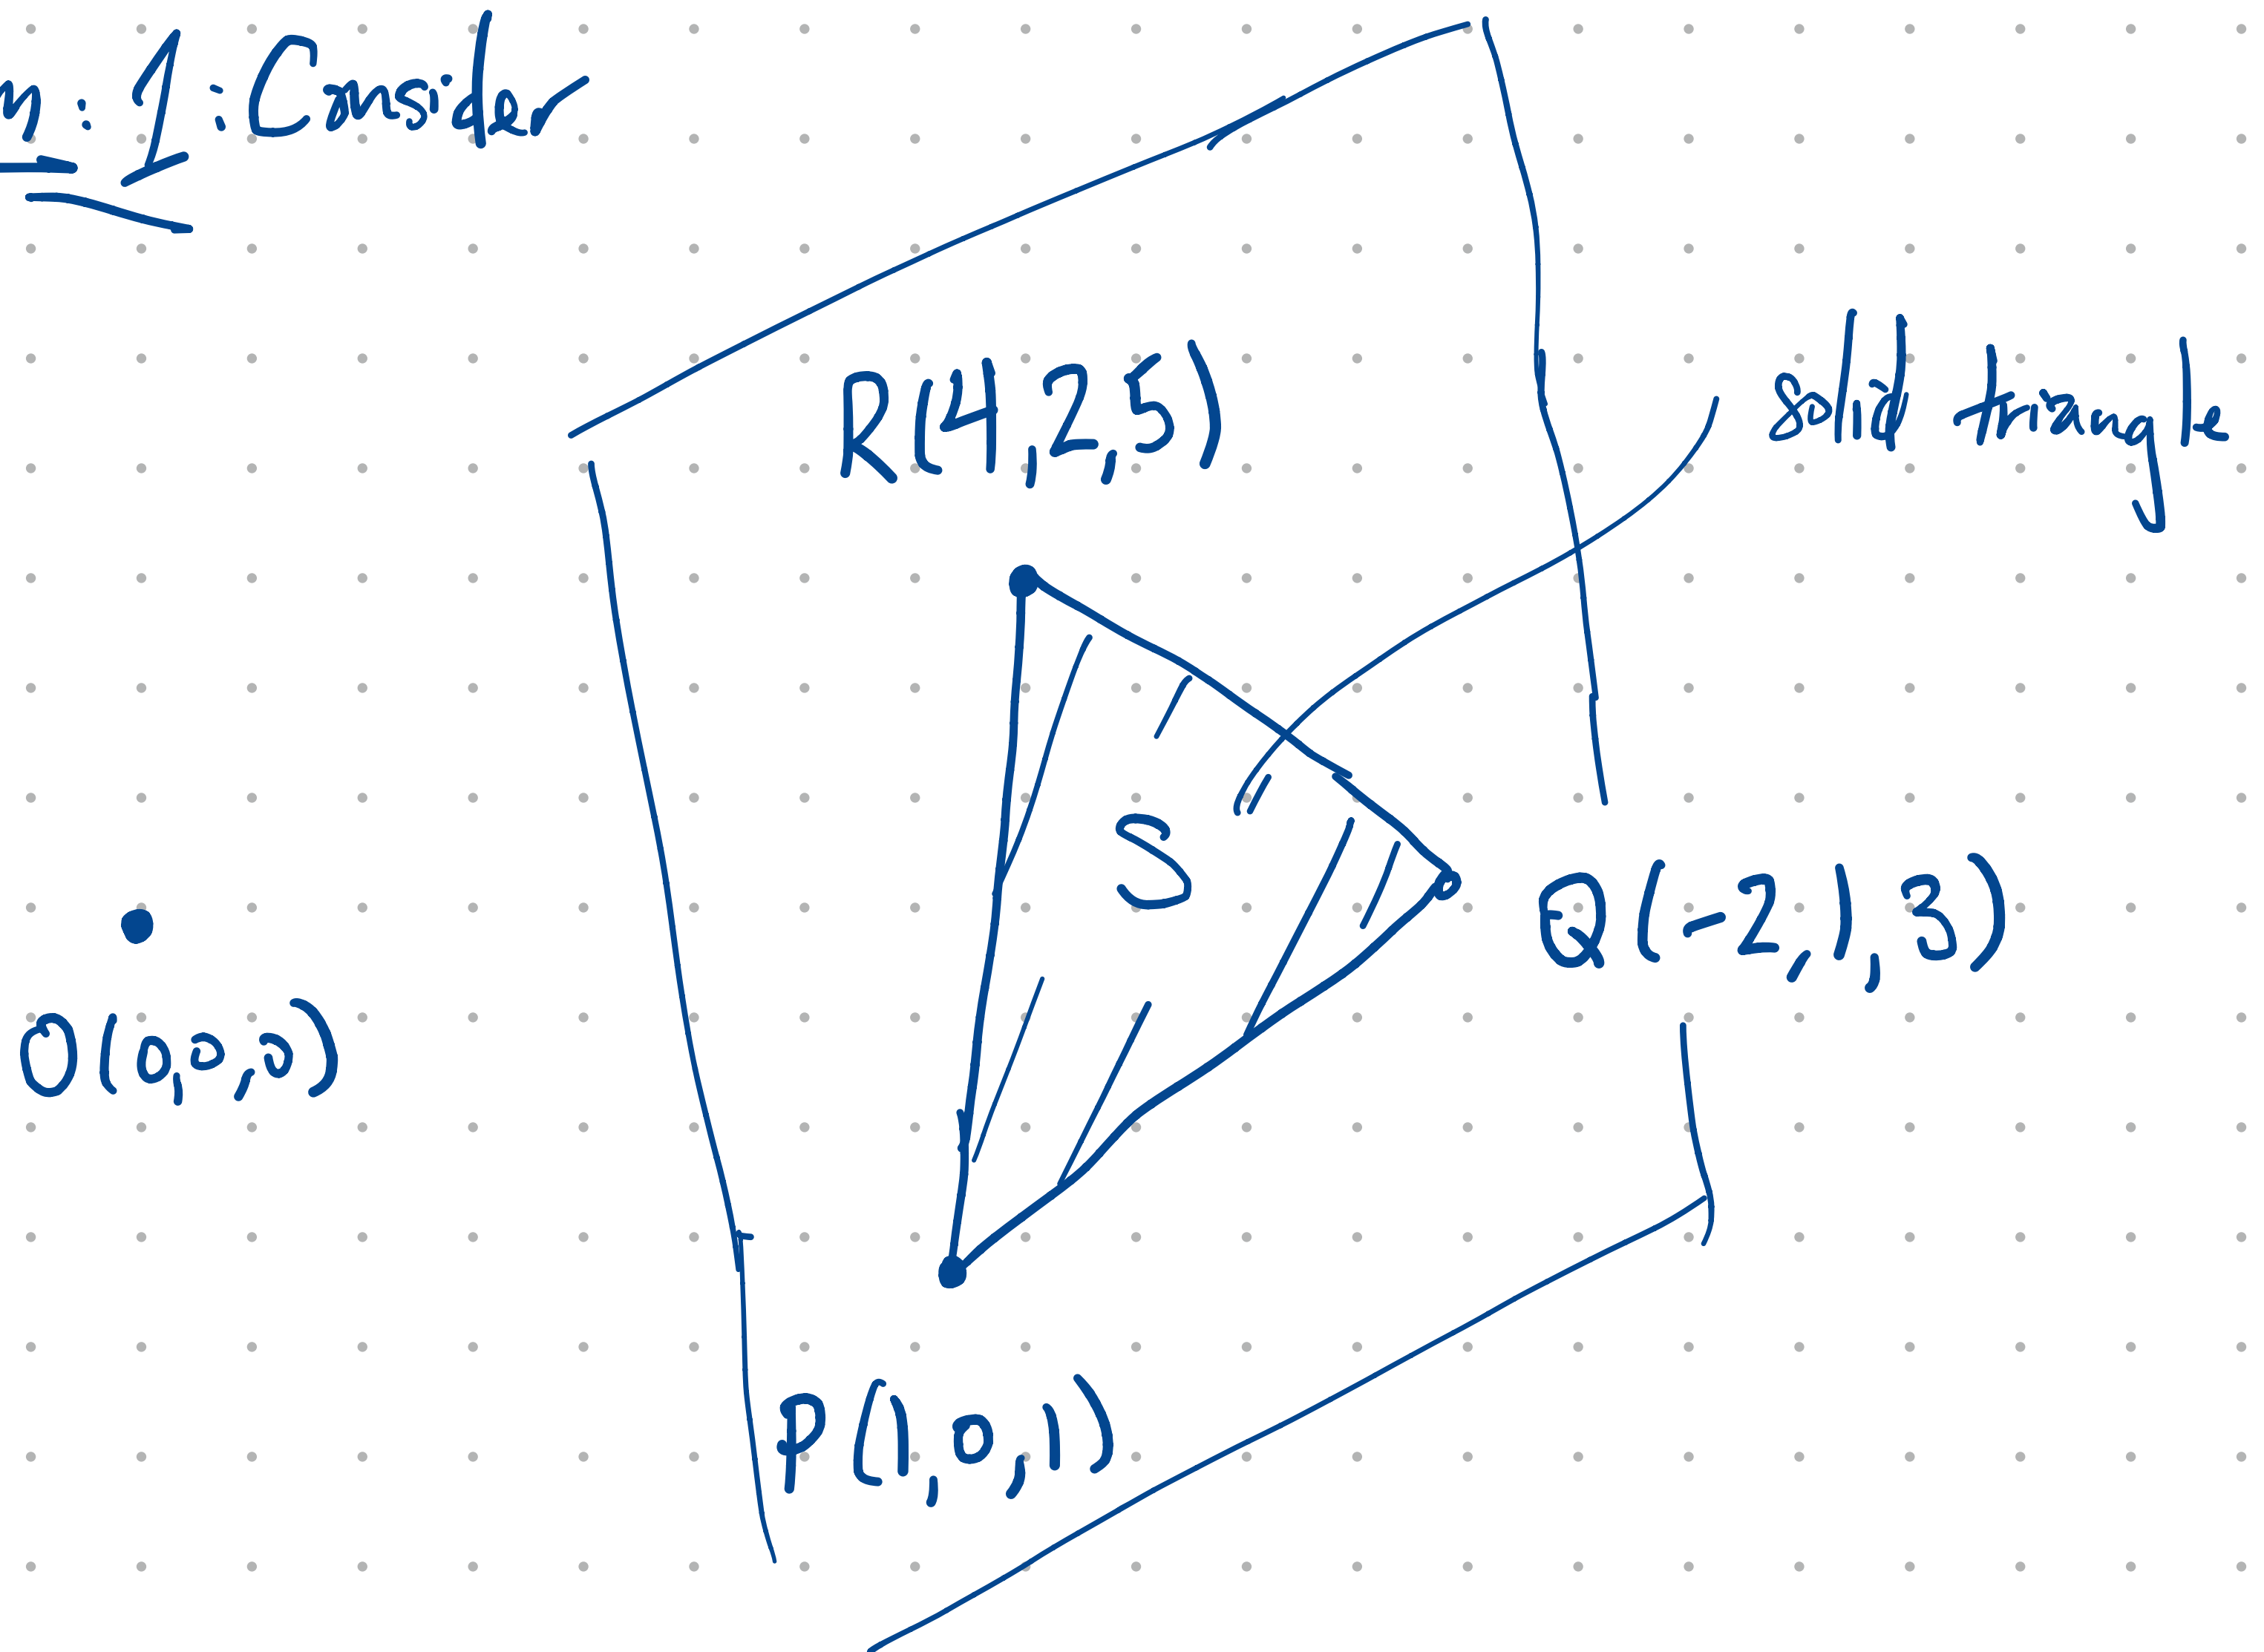 m: 1: Consider
R(4,2,5)
solid triangle
S
Q(-2,1,3)
O(0,0,0)
P(1,0,1)